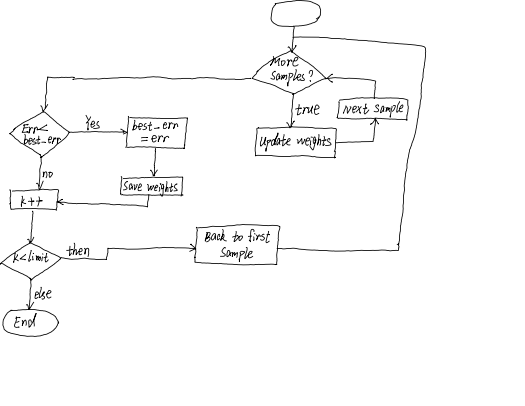 More
samples?
true
Next sample
Update weights
Err<
best_err
Yes
best_err
= err
Save weights
no
k++
k<limit
then
Back to first
Sample
else
End